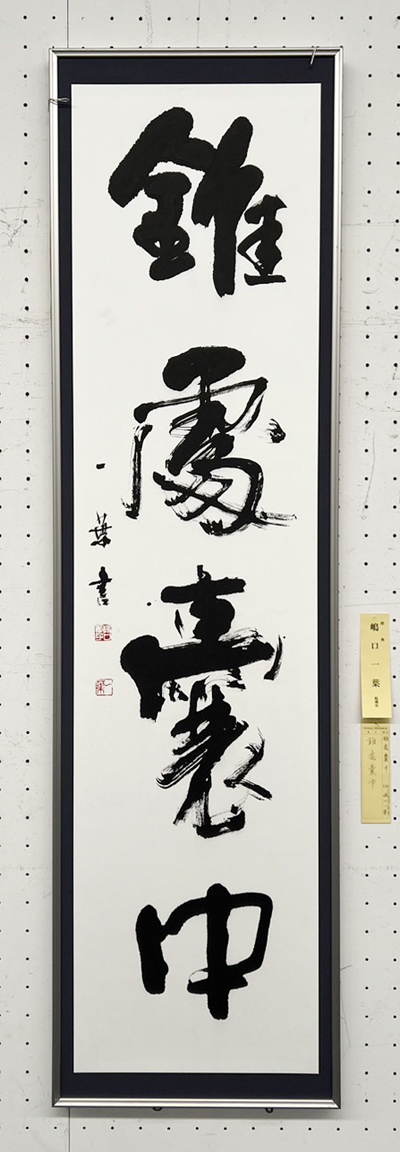 錐處嚢中
一葉書
嶋口一葉
錐処嚢中